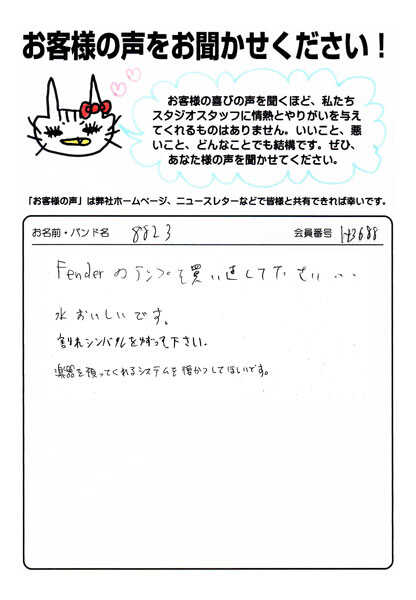 お客様の声をお聞かせください！
お客様の喜びの声を聞くほど、私たち
スタジオスタッフに情熱とやりがいを与え
てくれるものはありません。いいこと、悪
いこと、どんなことでも結構です。ぜひ、
あなた様の声を聞かせてください。
「お客様の声」は弊社ホームページ、ニュースレターなどで皆様と共有できれば幸いです。
お名前・バンド名 8823 会員番号
Fenderのアンプを買い直して下さい...
水おいしいです。
割れシンバルを 下さい.
楽器を預ってくれるシステムを復かつしてほしいです。